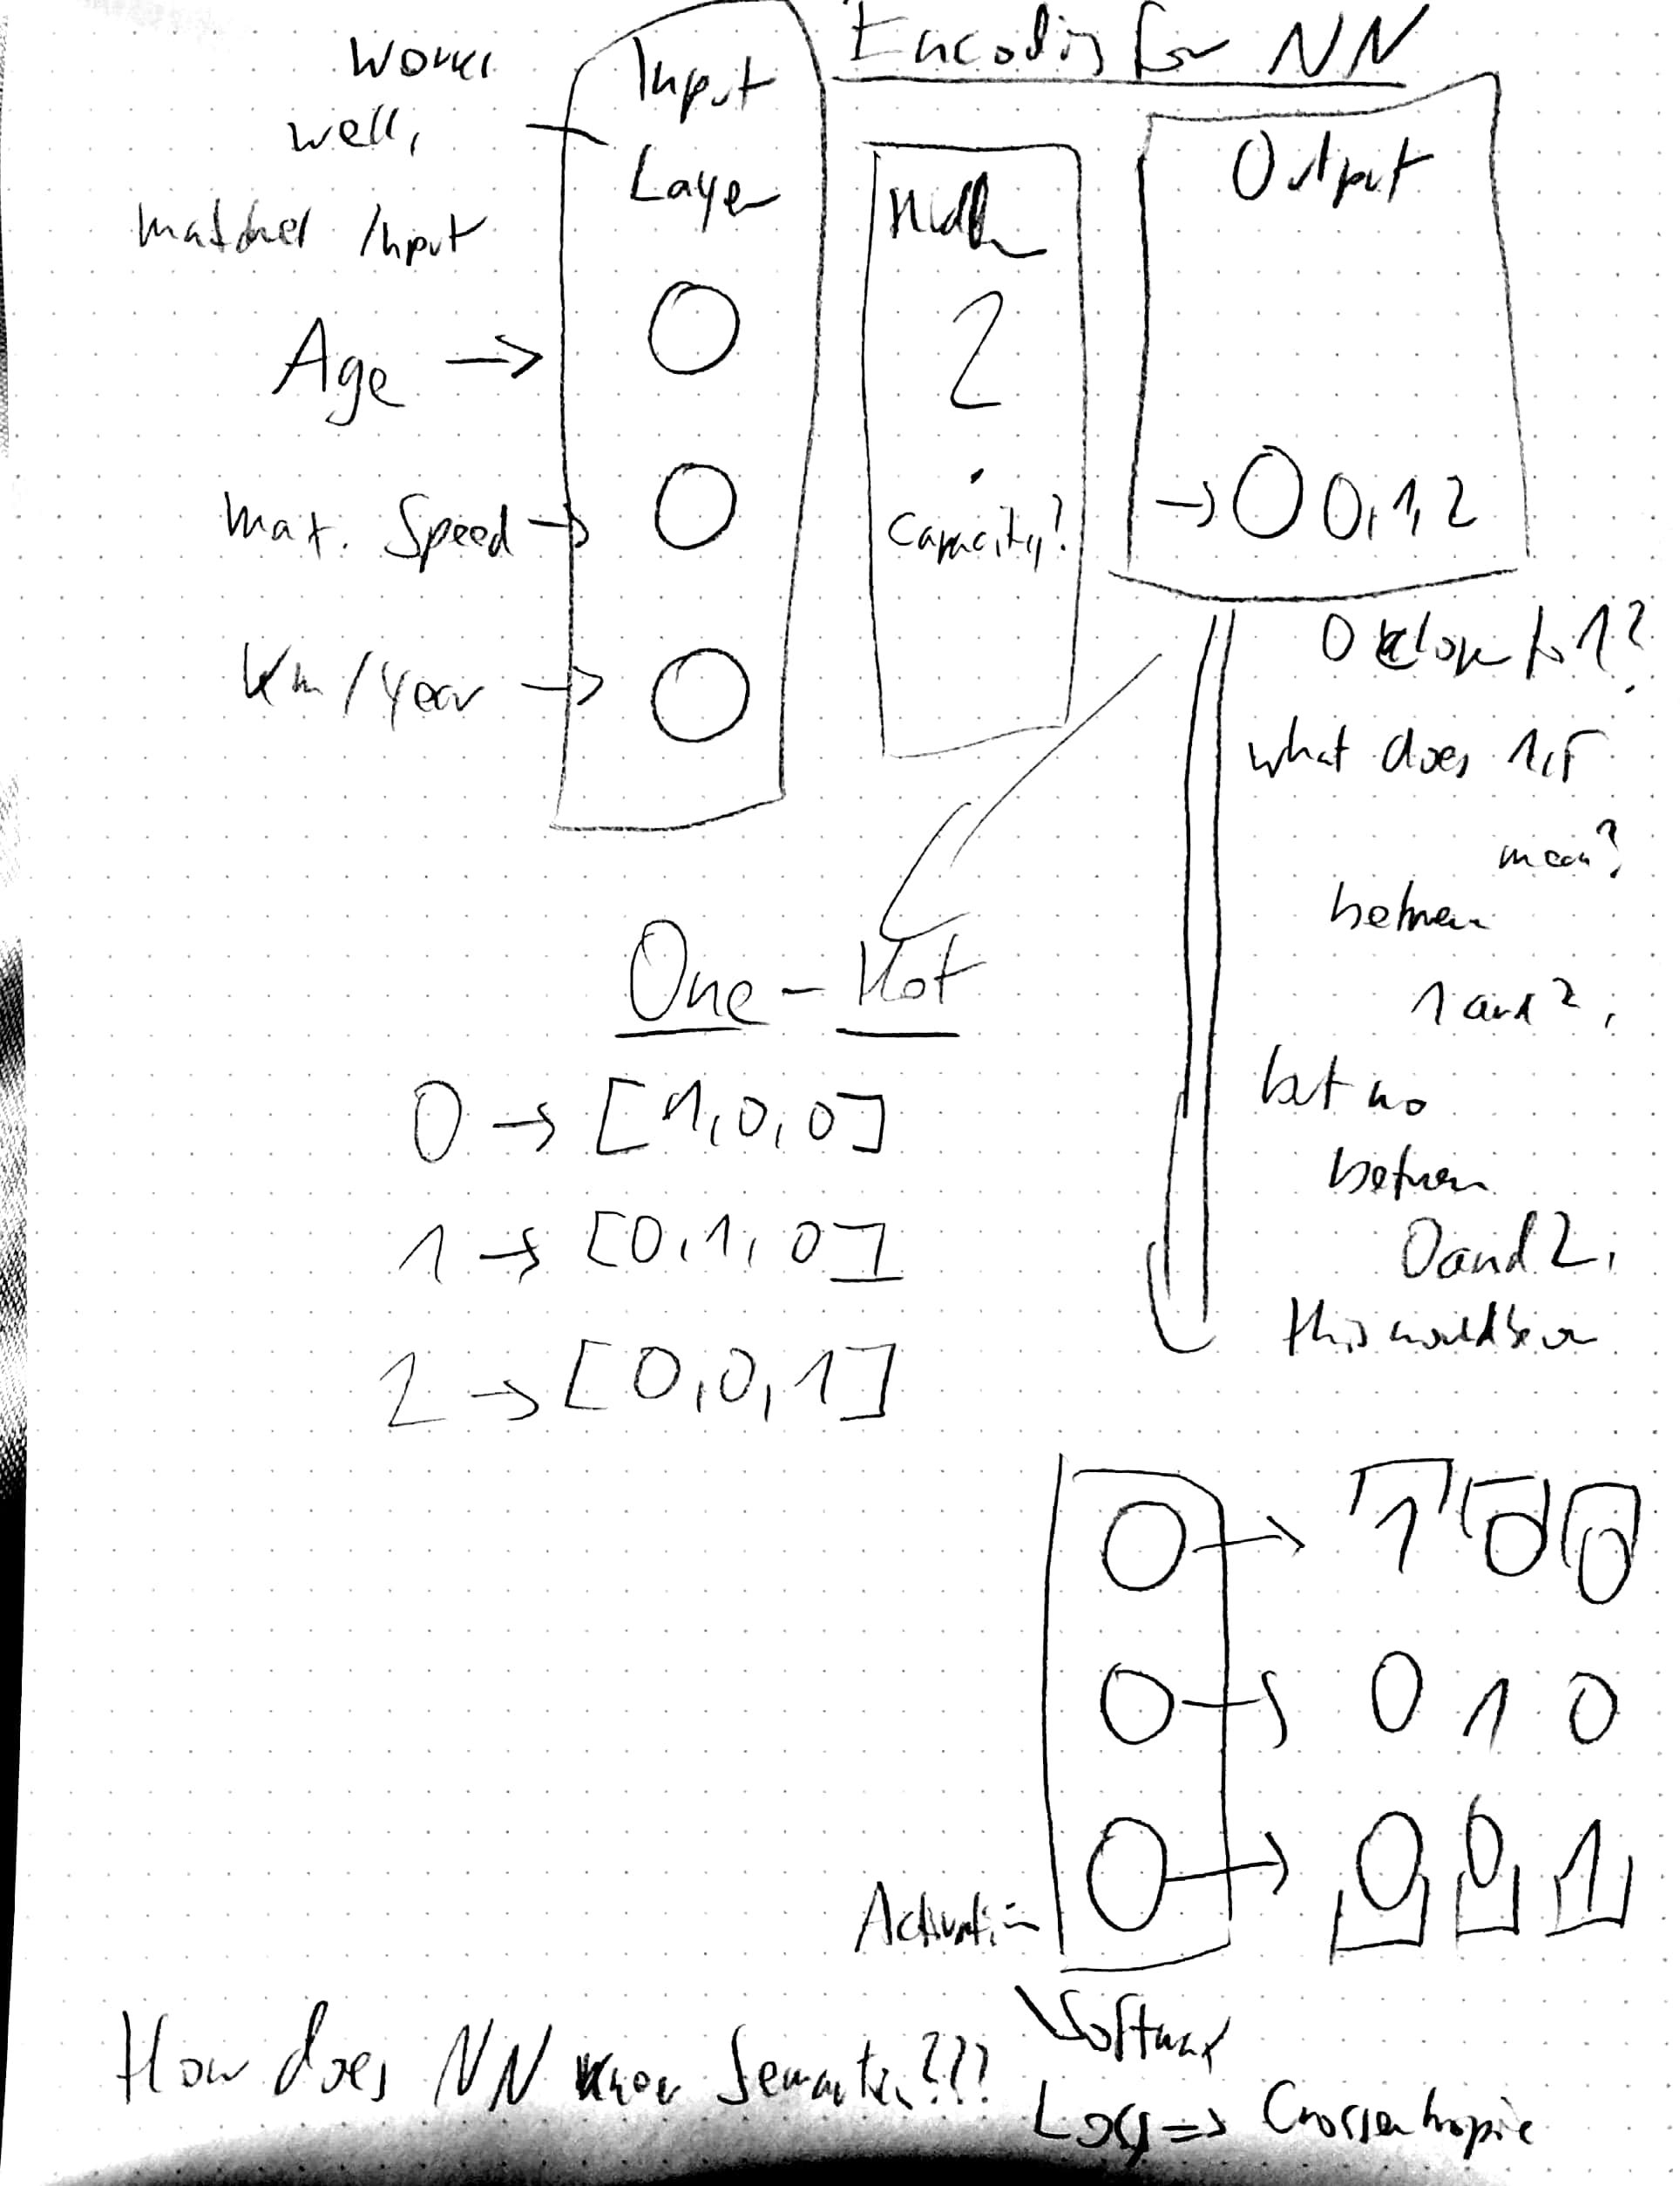 Encoding for NN
works
well,
matches Input
Input
Layer
Age →
max. Speed →
Km/Year →
Hidden
?
Capacity?
Output
→ O 0,1,2
0 closer to 1?
what does 1,5
mean?
between
1 and 2,
but no
between
0 and 2,
this would be
One-Hot
0 → [1,0,0]
1 → [0,1,0]
2 → [0,0,1]
→ 1 0 0
→ 0 1 0
→ 0 0 1
Activation
Softmax
Loss => Crossentropie
How does NN know Semantics???